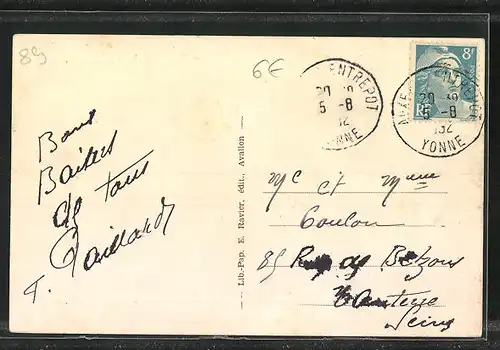 89
6€
Bons
Baisers
de tous
F. Gaillard
Lib.-Pap. E. Ravier, édit., Avallon
ENTREPOT
5 -8
YONNE
8F
RF
5 -8
YONNE
Mr et Mme
Coulon
85 Rue de Bezons
Nanterre
Seine